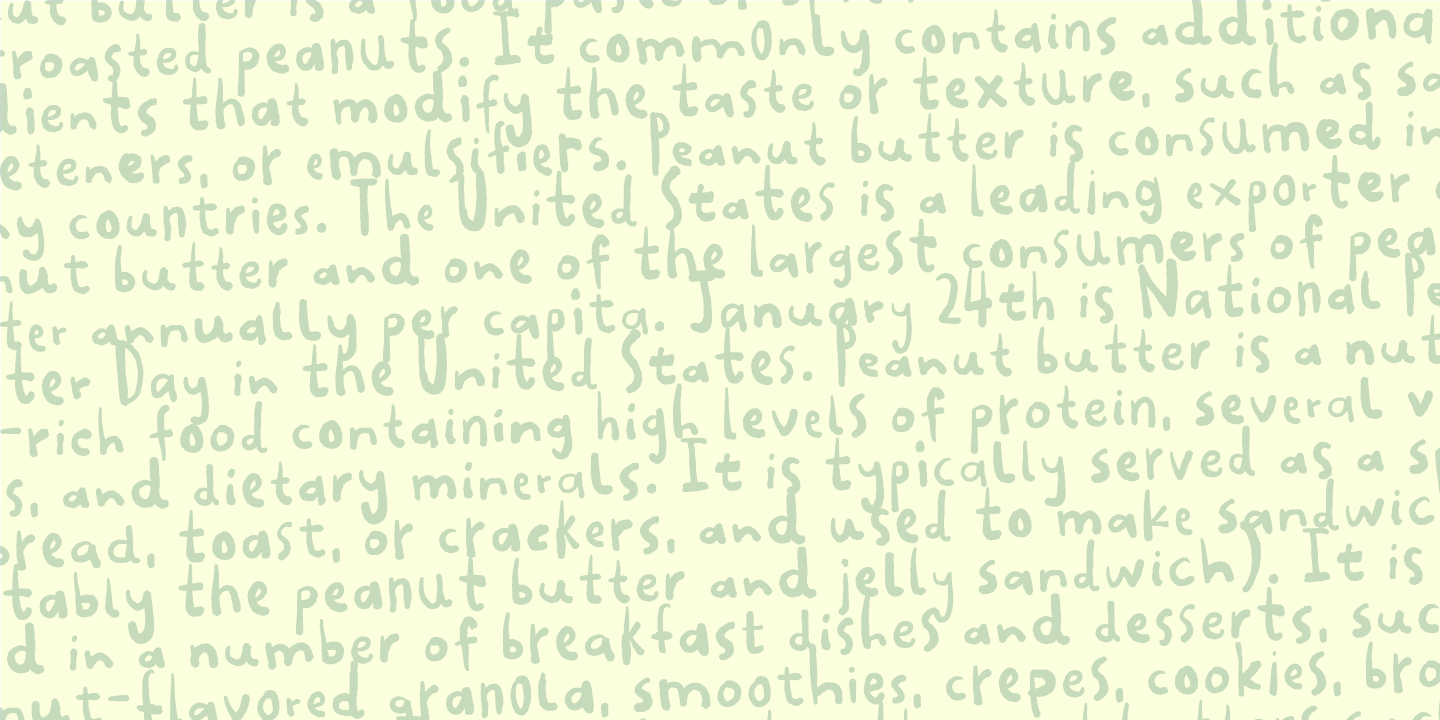 ut butter is a food paste or
roasted peanuts. It commonly contains additiona
dients that modify the taste or texture, such as sa
eteners, or emulsifiers. Peanut butter is consumed in
ny countries. The United States is a leading exporter
nut butter and one of the largest consumers of pea
ter annually per capita. January 24th is National Pe
ter Day in the United States. Peanut butter is a nut
-rich food containing high levels of protein, several v
s, and dietary minerals. It is typically served as a sp
bread, toast, or crackers, and used to make sandwic
tably the peanut butter and jelly sandwich). It is
d in a number of breakfast dishes and desserts, suc
nut-flavored granola, smoothies, crepes, cookies, bro